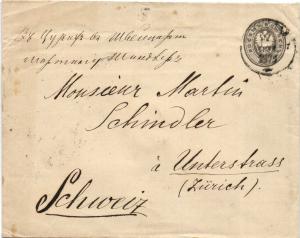 въ Цурихъ въ Швейцарію
Мартину Шиндлеръ
Monsieur Martin
Schindler
à Unterstrass
(Zürich).
Schweiz